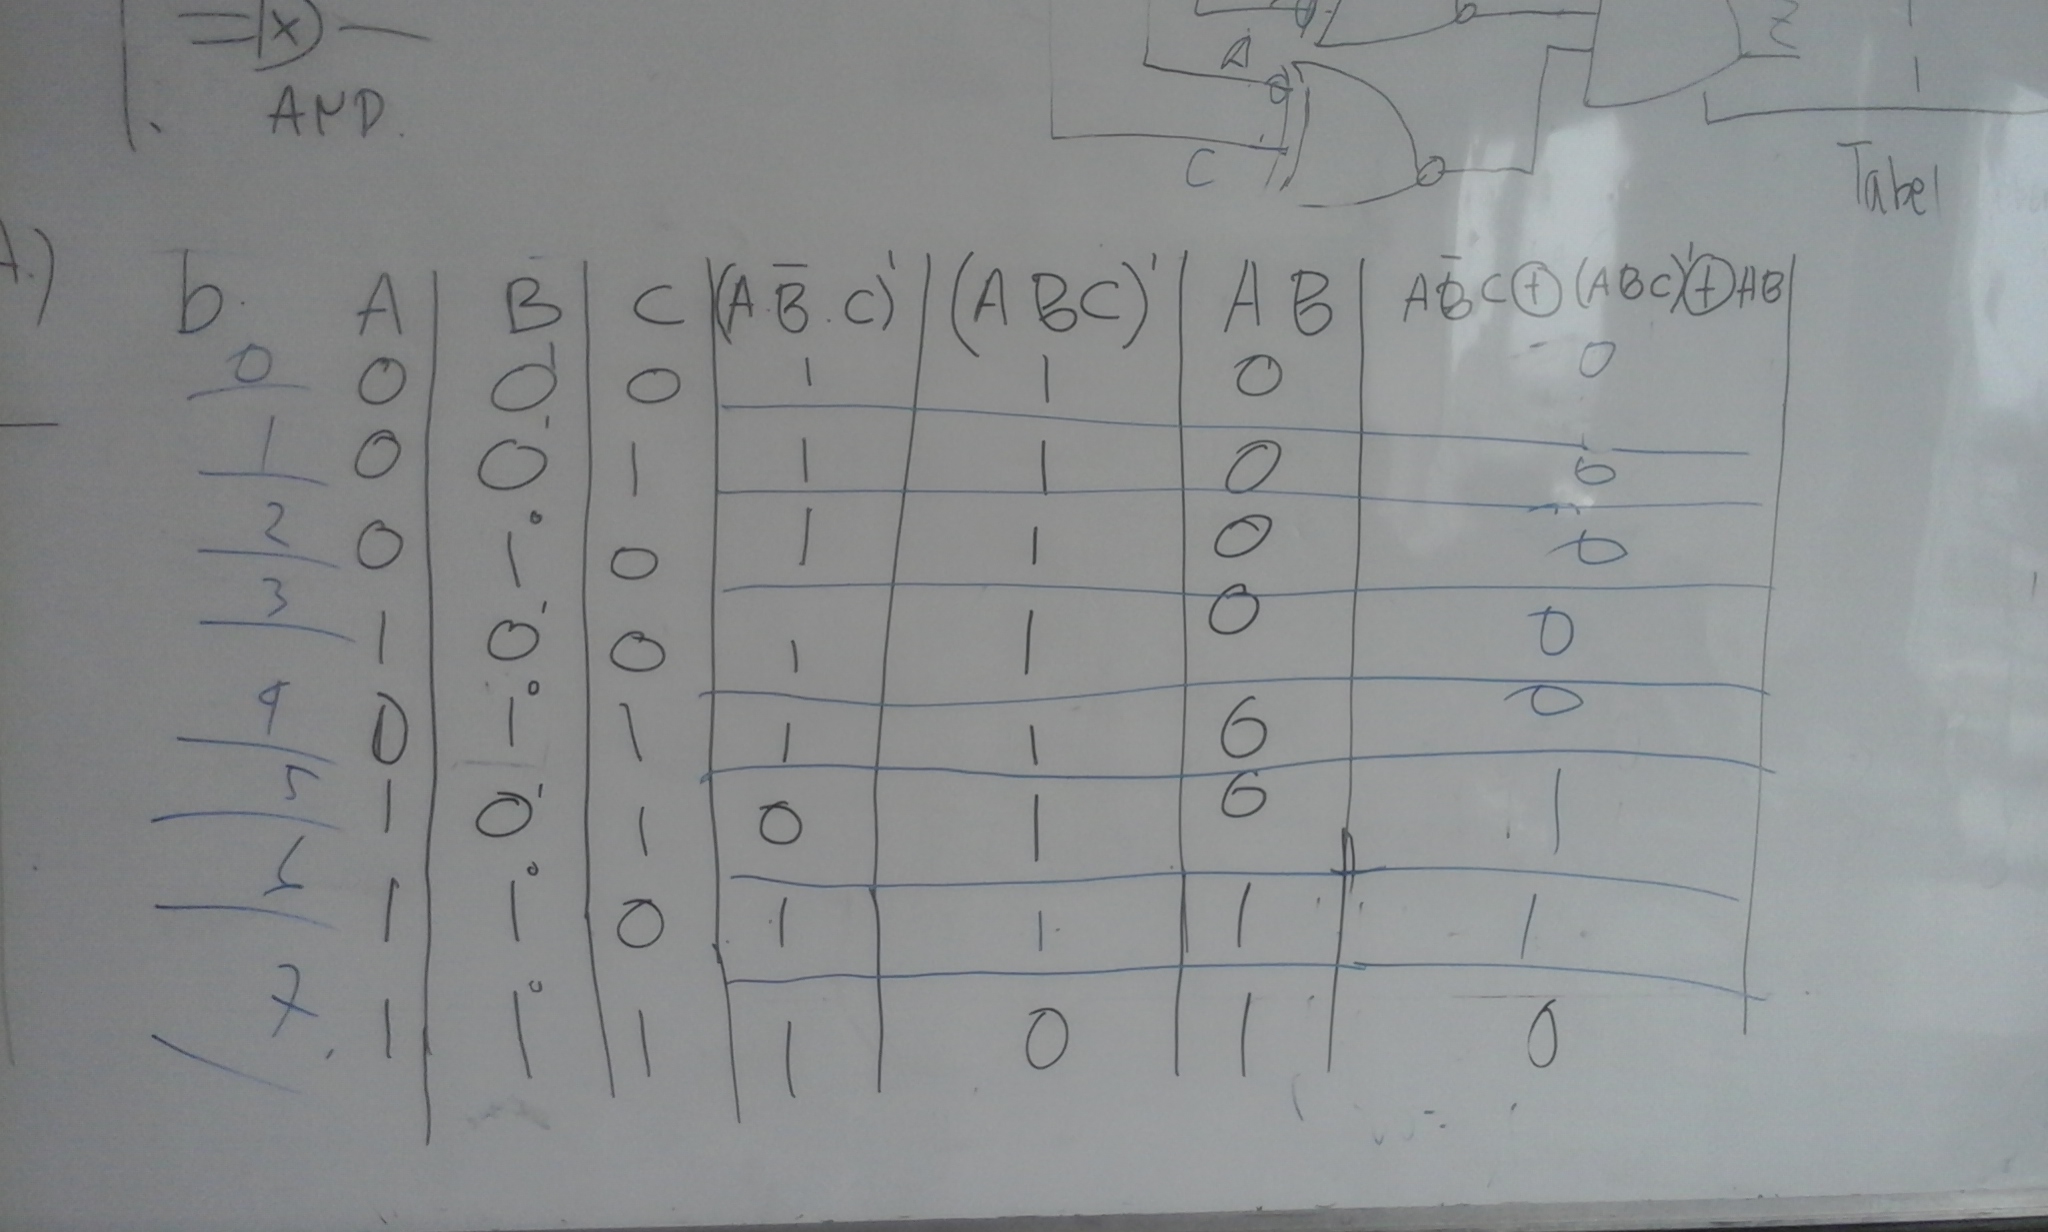 AND.
A
C
Z
1
1
Tabel
A.)
b. A B C (A.B̅.C)' (ABC)' AB AB̅C⊕(ABC)'⊕AB
0 0 0 0 1 1 0 0
1 0 0 1 1 1 0 0
2 0 1 0 1 1 0 0
3 1 0 0 1 1 0 0
4 0 1 1 1 1 0 0
5 1 0 1 0 1 0 1
6 1 1 0 1 1 1 1
7. 1 1 1 1 0 1 0